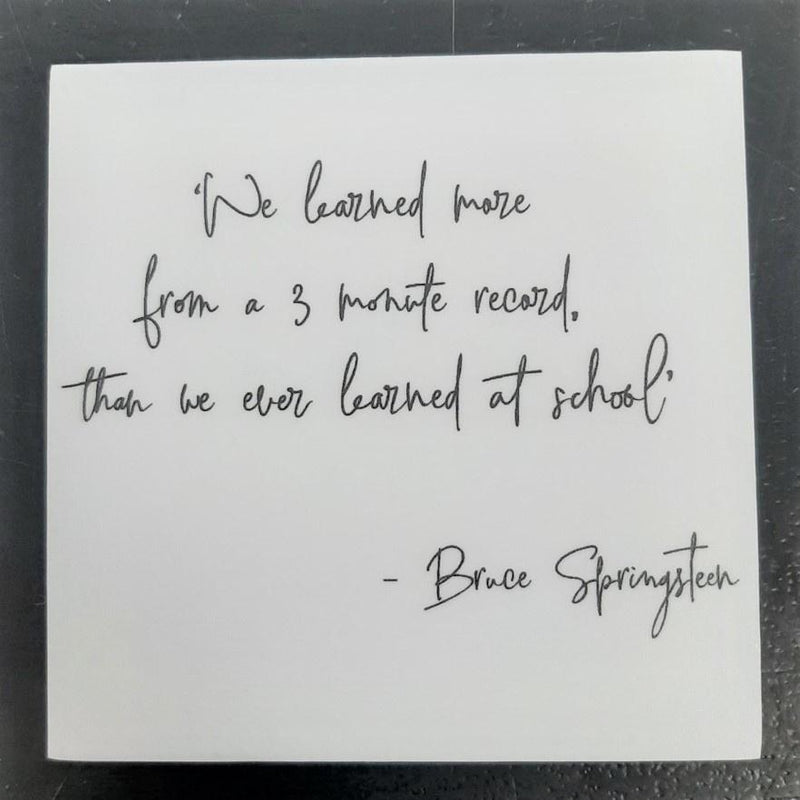 ‘We learned more
from a 3 monute record,
than we ever learned at school’
- Bruce Springsteen